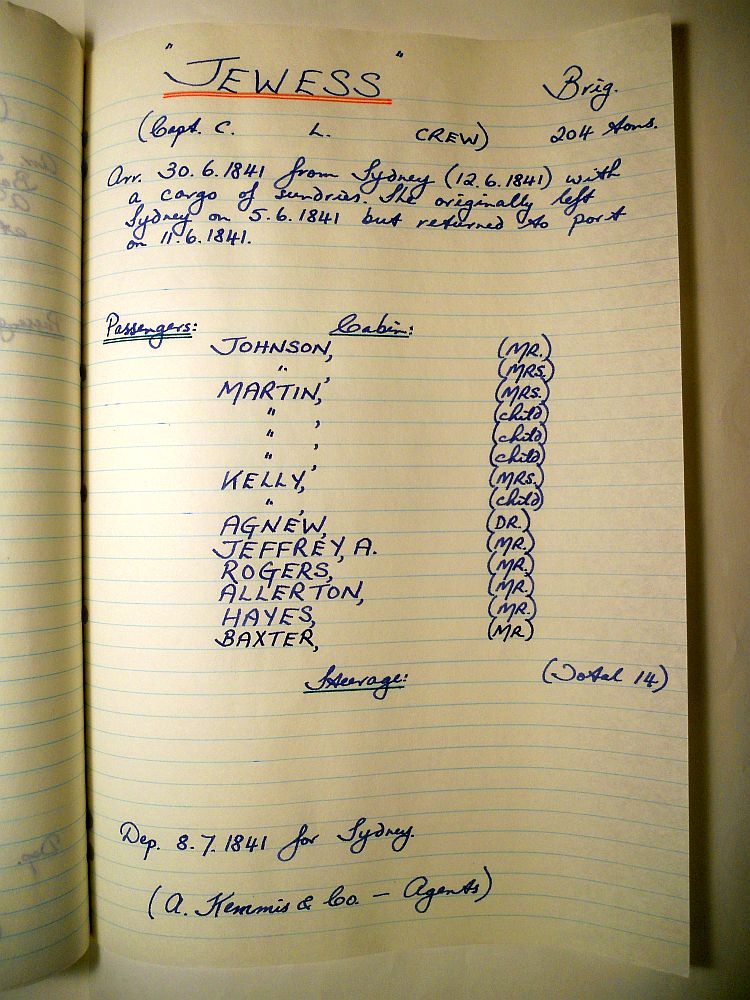 "JEWESS" Brig.
(Capt. C. L. CREW) 204 tons.
Arr. 30.6.1841 from Sydney (12.6.1841) with
a cargo of sundries. She originally left
Sydney on 5.6.1841 but returned to port
on 11.6.1841.
Passengers: Cabin:
JOHNSON, (MR.)
" , (MRS.)
MARTIN, (MRS.)
" , (child)
" , (child)
" , (child)
KELLY, (MRS.)
" , (child)
AGNEW, (DR.)
JEFFREY, A. (MR.)
ROGERS, (MR.)
ALLERTON, (MR.)
HAYES, (MR.)
BAXTER, (MR)
Steerage: (Total 14)
Dep. 8.7.1841 for Sydney.
(A. Kemmis & Co. — Agents)